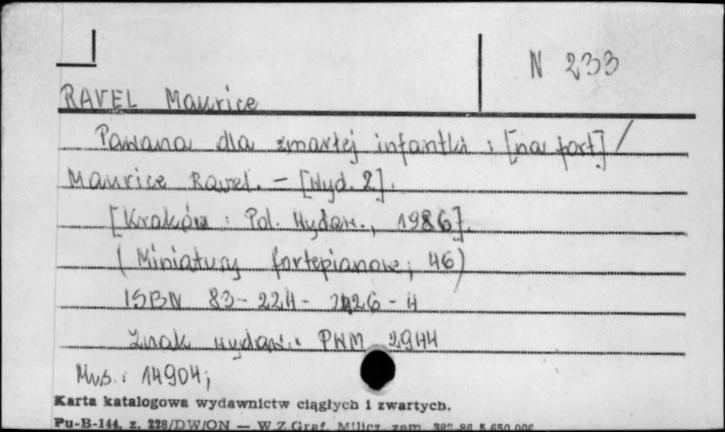 N 233
RAVEL Maurice
Pawana dla zmarłej infantki : [na fort] /
Maurice Ravel. - [Wyd. 2].
[Kraków : Pol. Wydaw., 1986].
(Miniatury fortepianowe; 46)
ISBN 83-224-
Znak wydaw.: PWM 2944
Mus.: 14904;
Karta katalogowa wydawnictw ciągłych i zwartych.
Pu-B-144, z. 228/DW/ON — W.Z.Graf. Milicz, zam.